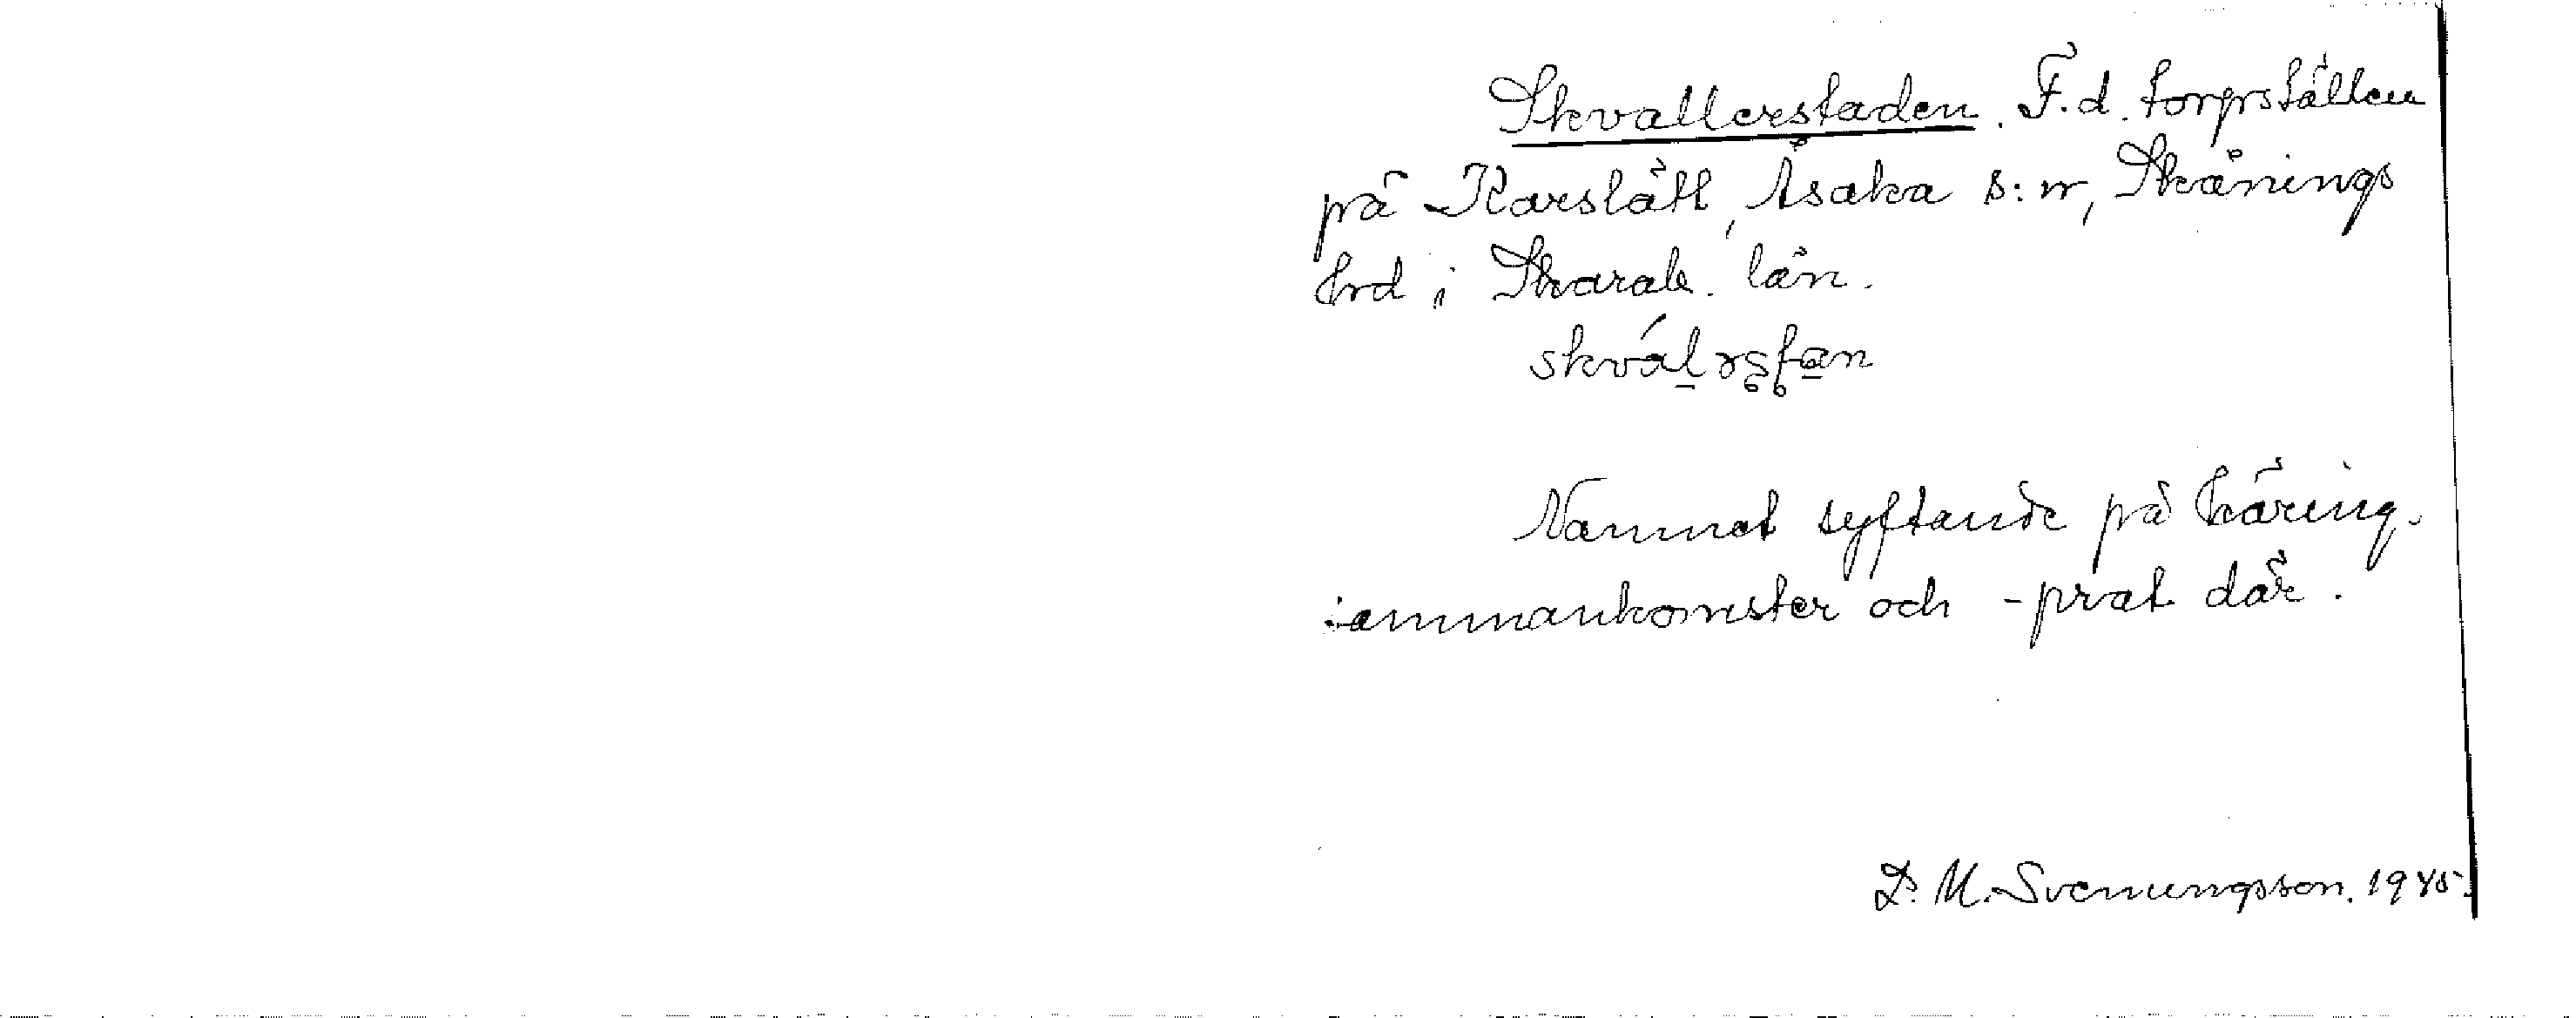 Skvallerstaden. F.d. torpställen
på Karslätt, Åsaka s:n, Skånings
hrd i Skarab. län.
Namnet syftande på käring-
sammankomster och -prat där.
D. M. Svenungsson. 1945.